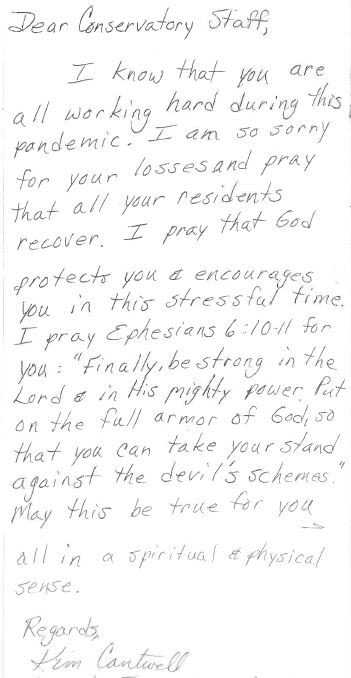 Dear Conservatory Staff,
I know that you are
all working hard during this
pandemic. I am so sorry
for your losses and pray
that all your residents
recover. I pray that God
protects you & encourages
you in this stressful time.
I pray Ephesians 6:10-11 for
you: "Finally, be strong in the
Lord & in His mighty power. Put
on the full armor of God, so
that you can take your stand
against the devil's schemes."
May this be true for you
all in a spiritual & physical
sense.
Regards,
Kim Cantwell